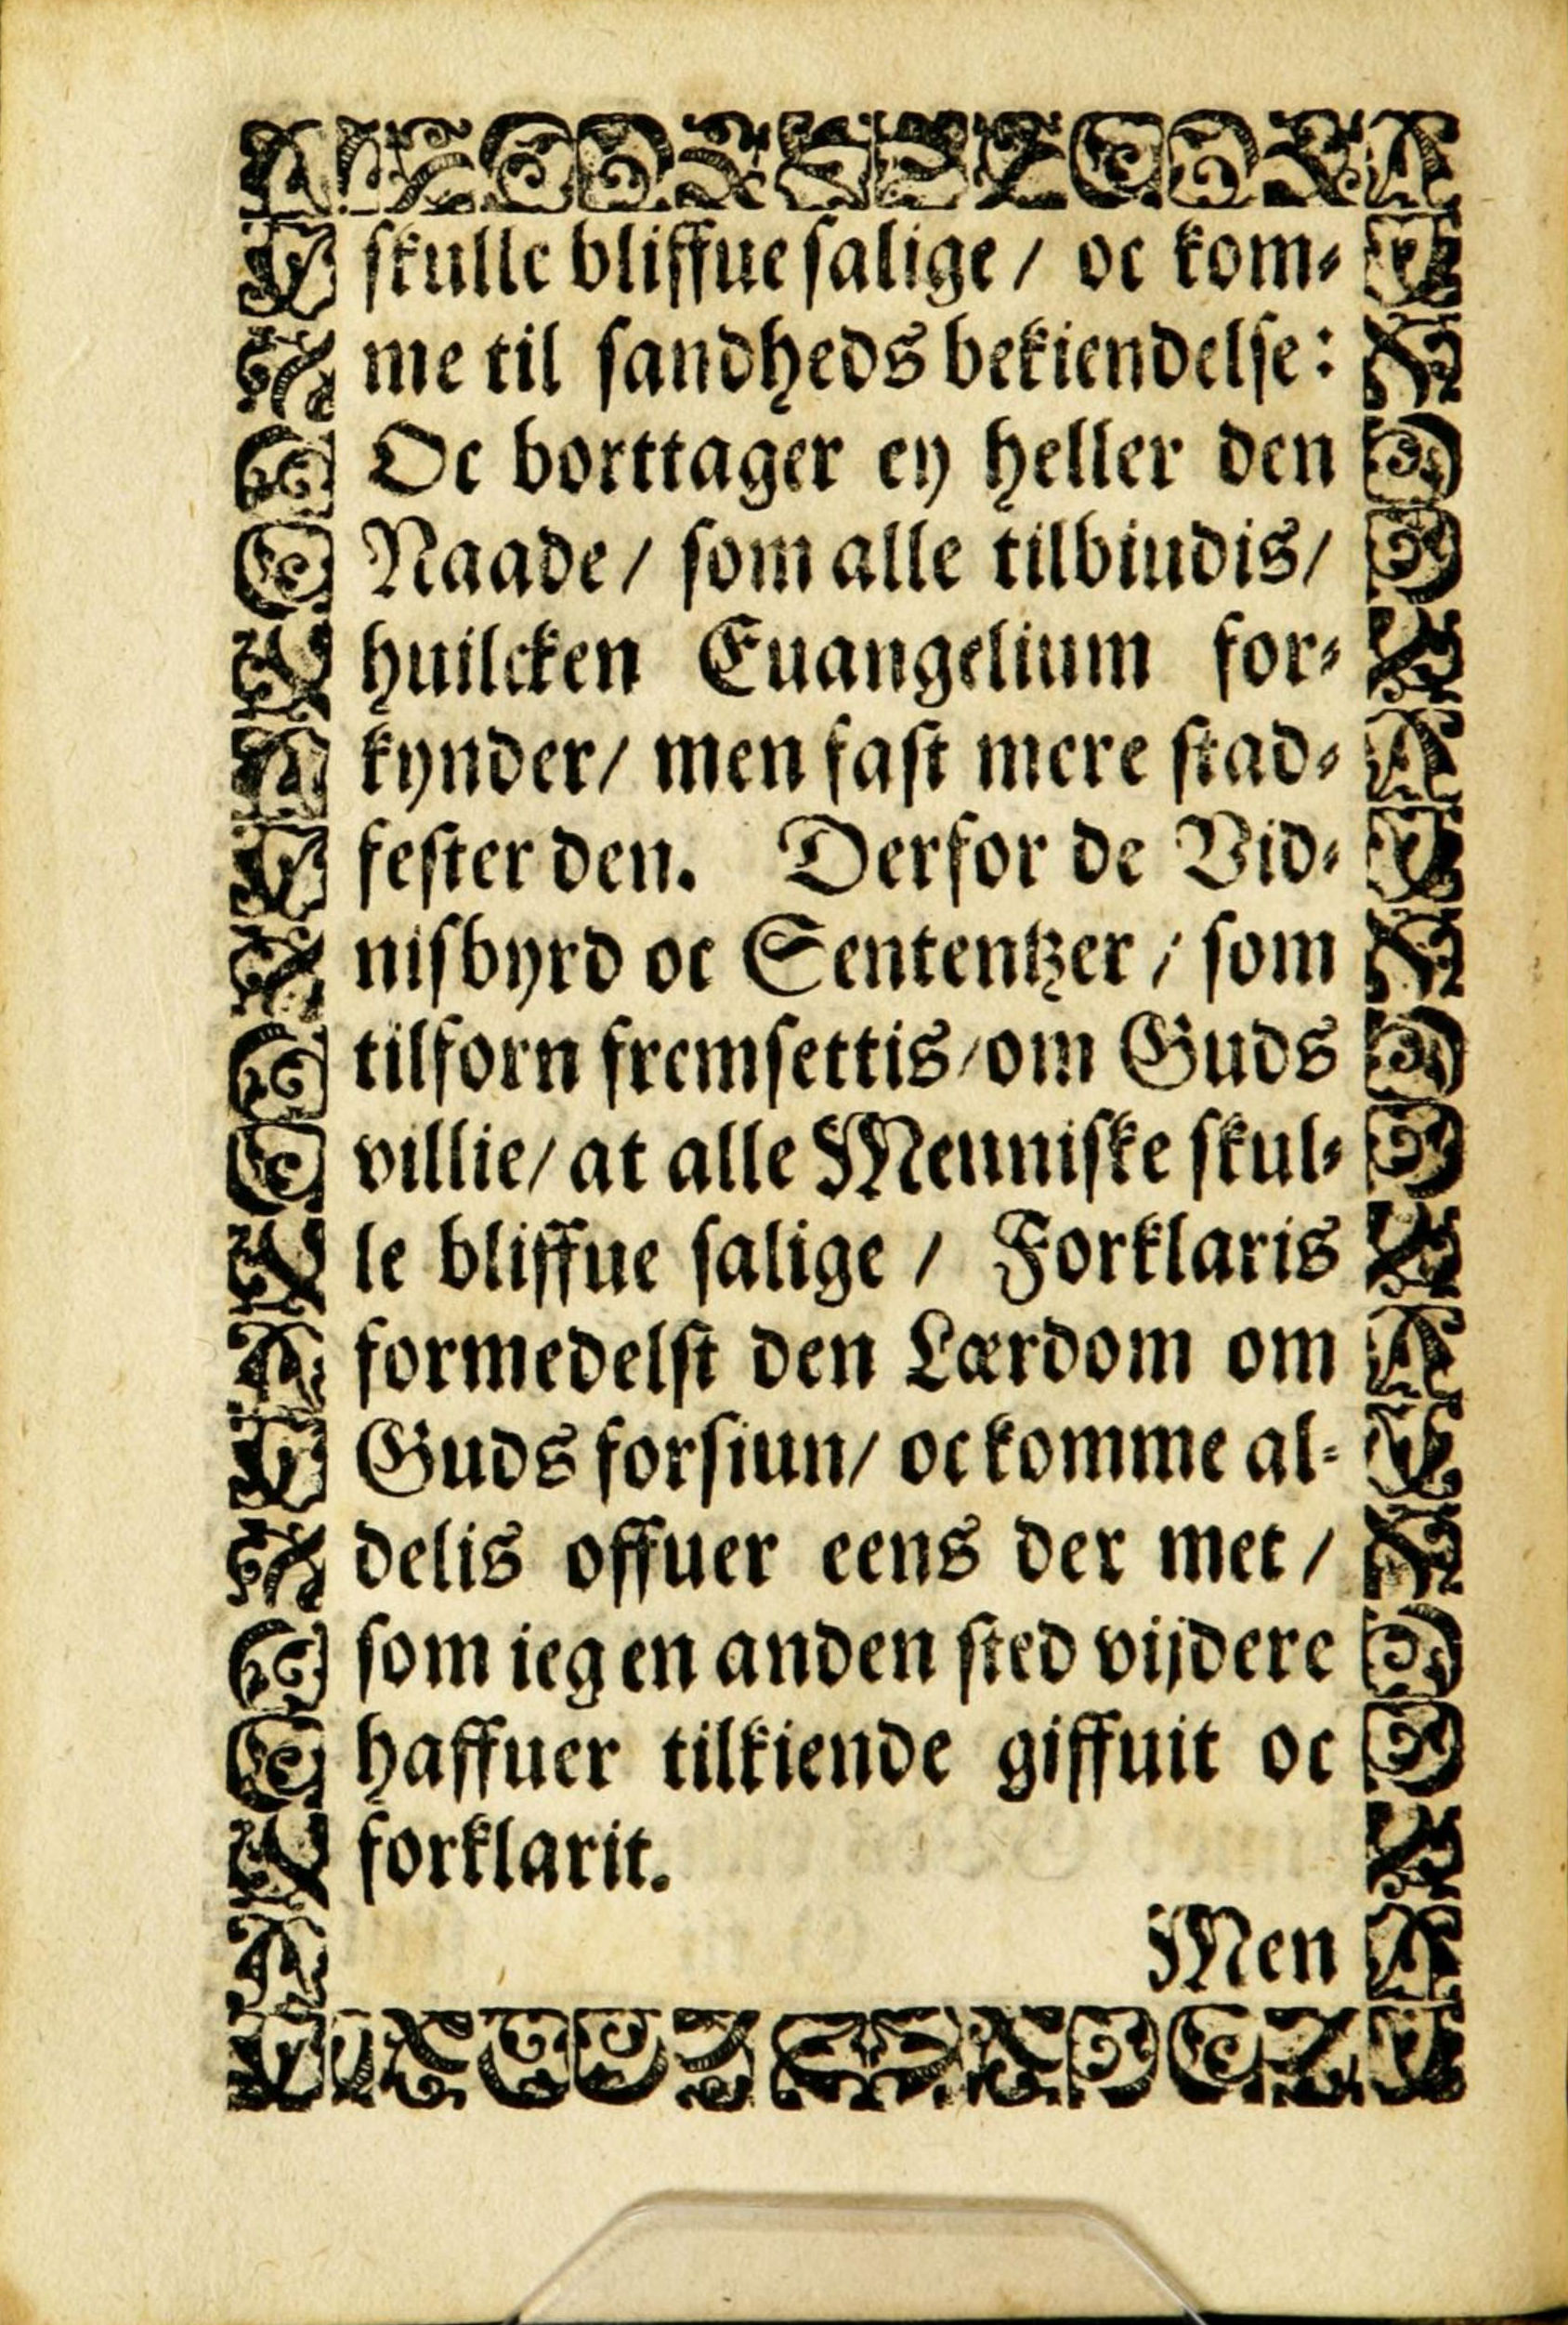 skulle bliffue salige / oc kom⸗
me til sandheds bekiendelse:
Oc borttager ey heller den
Naade / som alle tilbiudis/
huilcken Euangelium for⸗
kynder/ men fast mere stad⸗
fester den. Derfor de Vid⸗
nisbyrd oc Sententzer / som
tilforn fremsettis/om Guds
villie/ at alle Menniske skul⸗
le bliffue salige / Forklaris
formedelst den Lærdom om
Guds forsiun/ oc komme al⸗
delis offuer eens der met /
som ieg en anden sted vijdere
haffuer tilkiende giffuit oc
forklarit.
Men